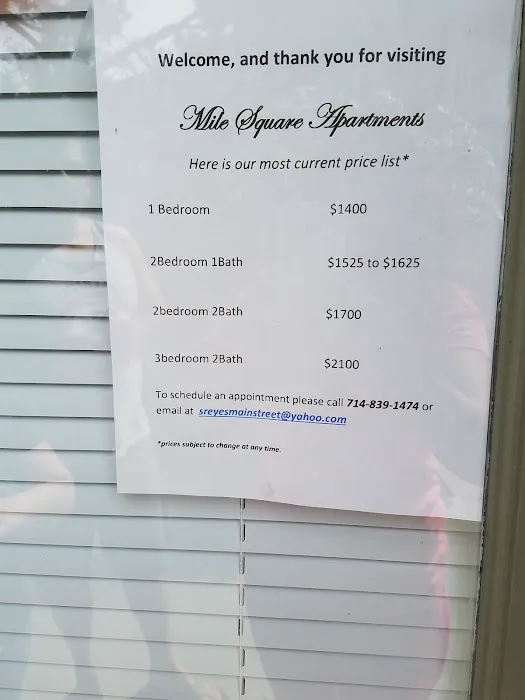 Welcome, and thank you for visiting
Mile Square Apartments
Here is our most current price list*
1 Bedroom $1400
2Bedroom 1Bath $1525 to $1625
2bedroom 2Bath $1700
3bedroom 2Bath $2100
To schedule an appointment please call 714-839-1474 or
email at sreyesmainstreet@yahoo.com
*prices subject to change at any time.